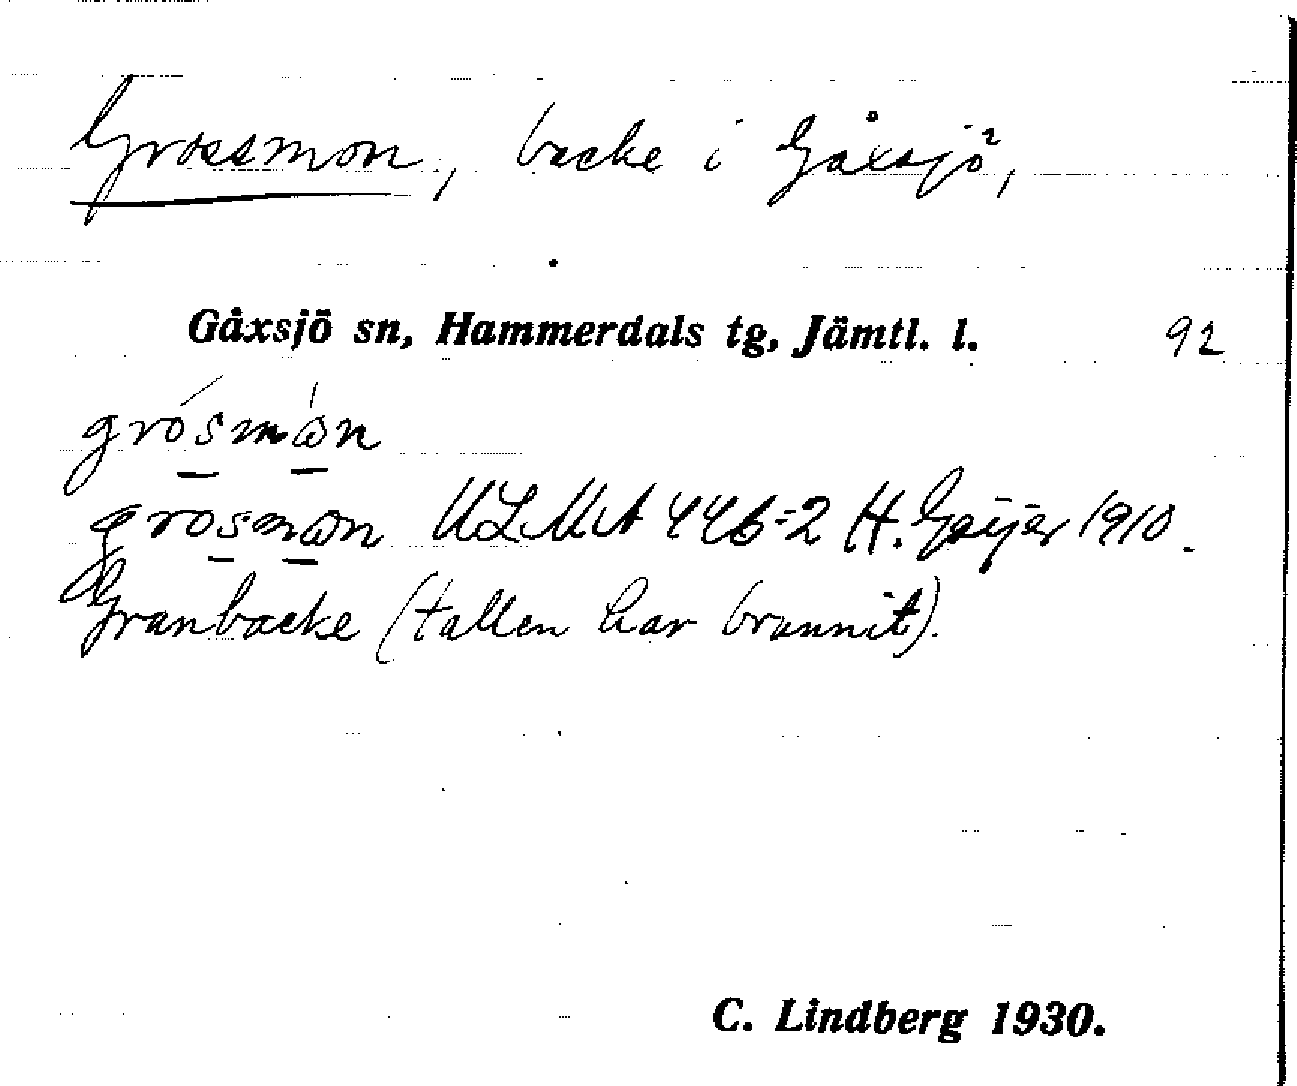 Grossmon, backe i Gåxsjö,
Gåxsjö sn, Hammerdals tg, Jämtl. l. 92
grósmòn
grosmon ULMA 446:2 H. Geijer 1910.
Granbacke (tallen har brunnit).
C. Lindberg 1930.